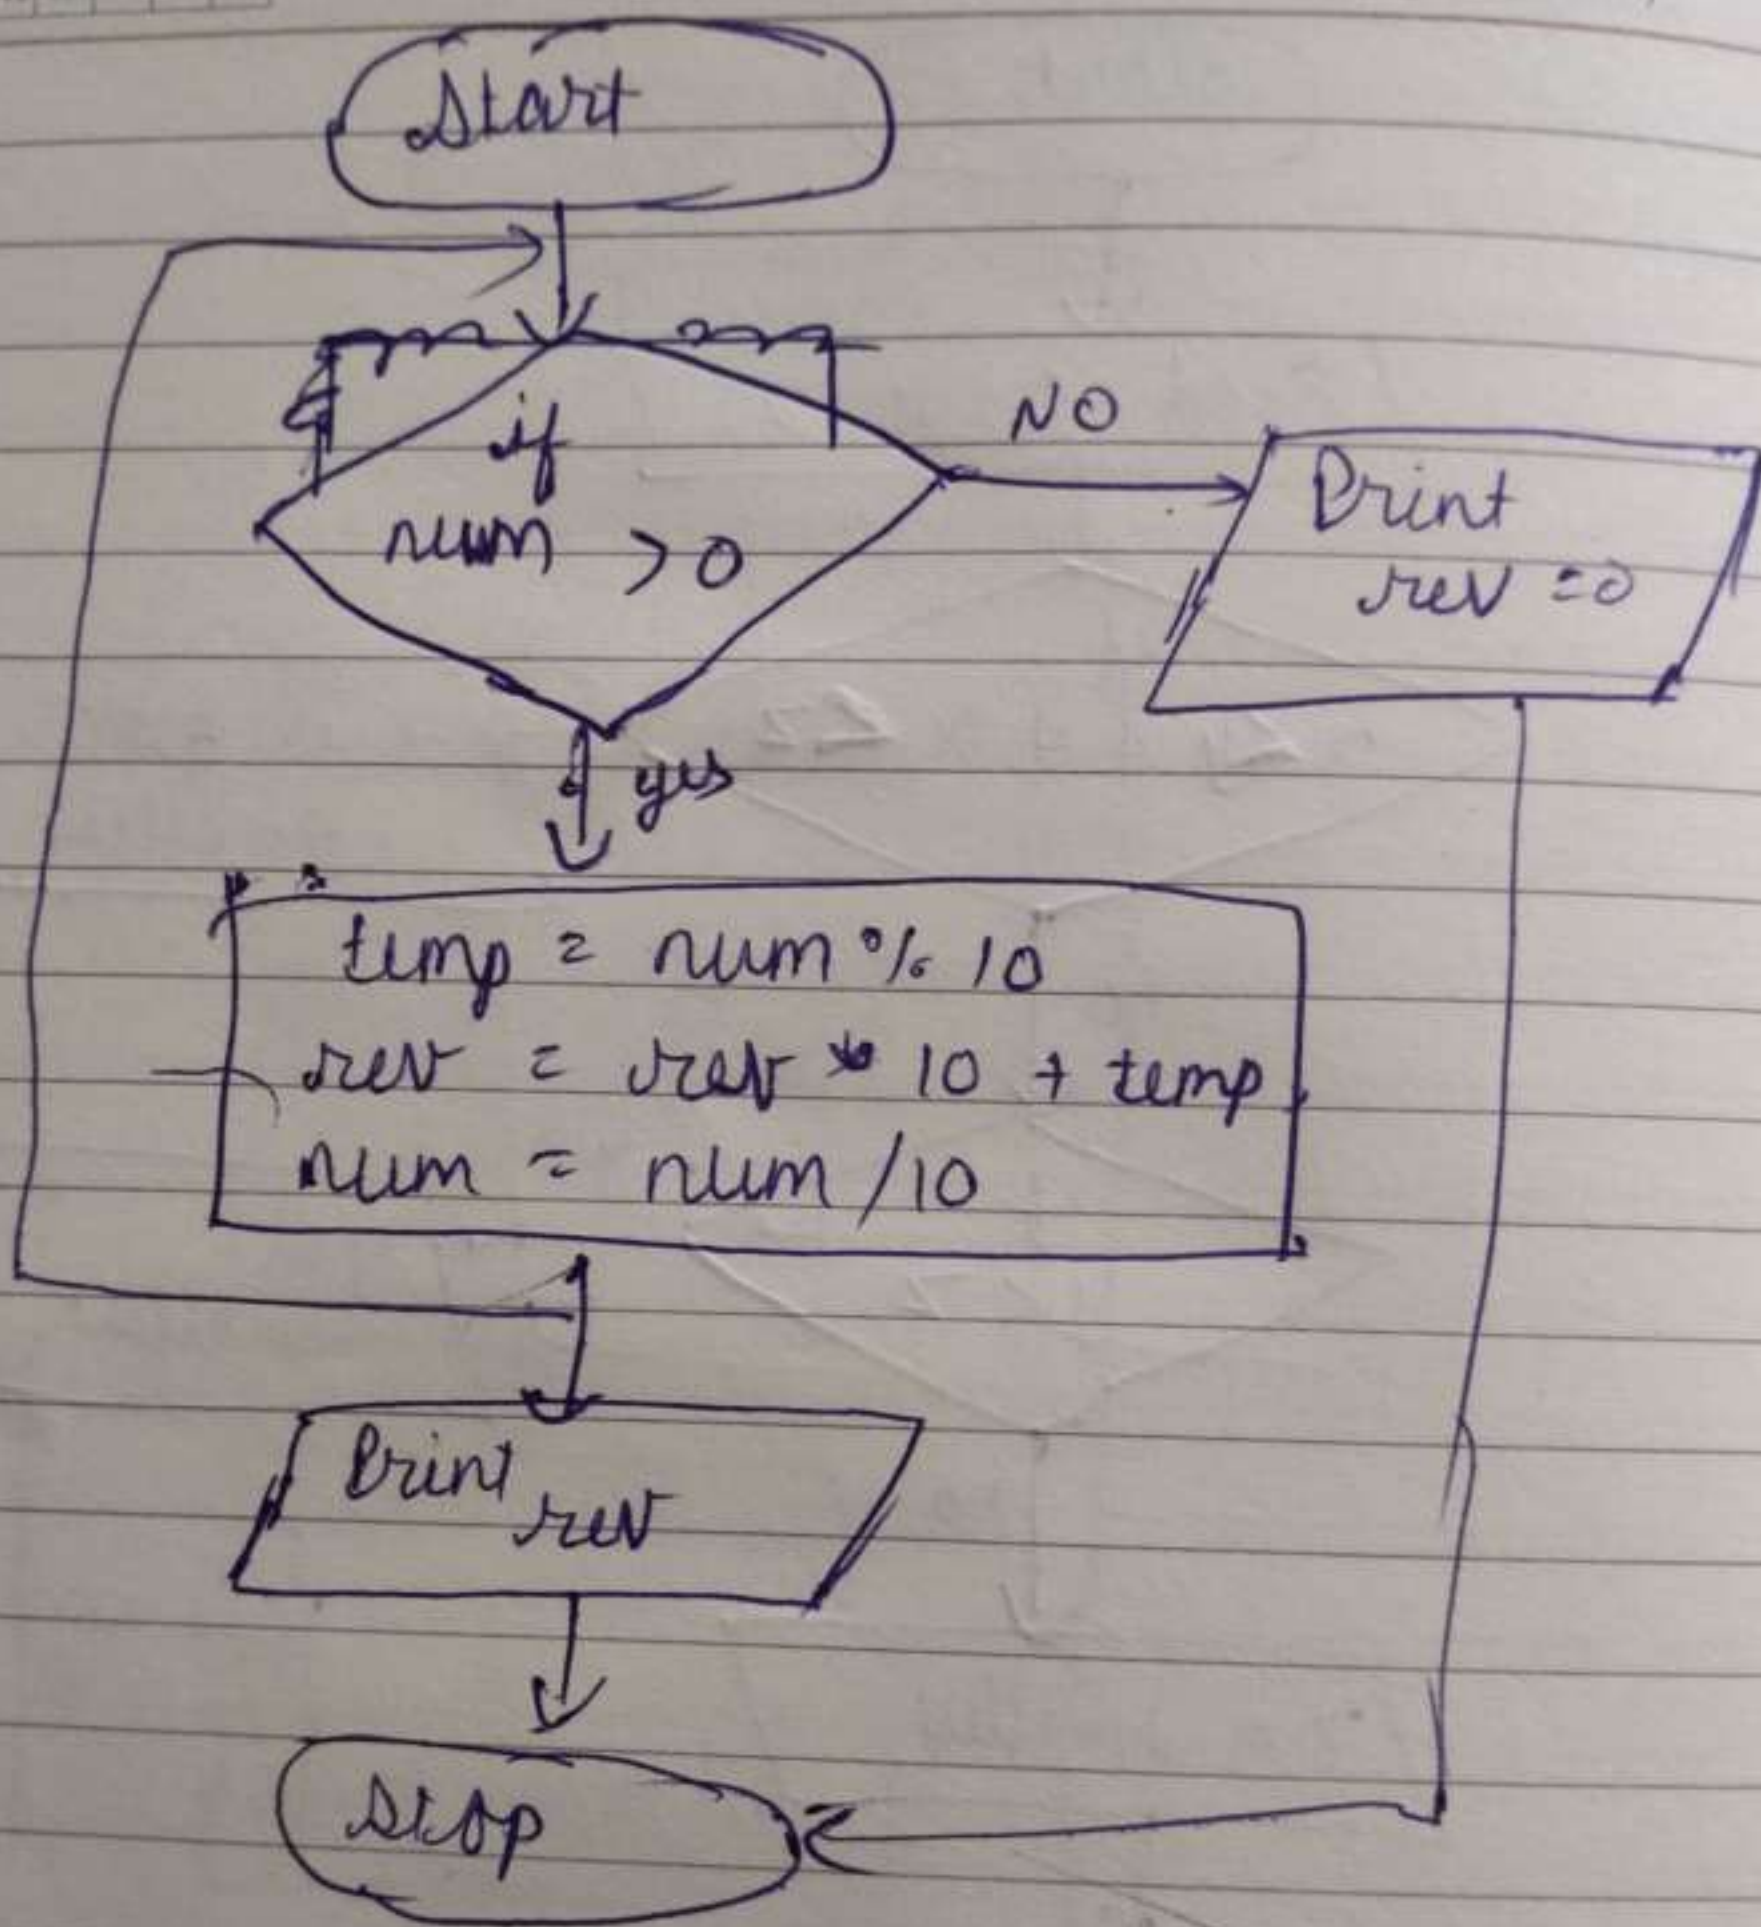 Start
if
num > 0
NO
Print
rev = 0
yes
temp = num % 10
rev = rev * 10 + temp
num = num / 10
Print
rev
Stop